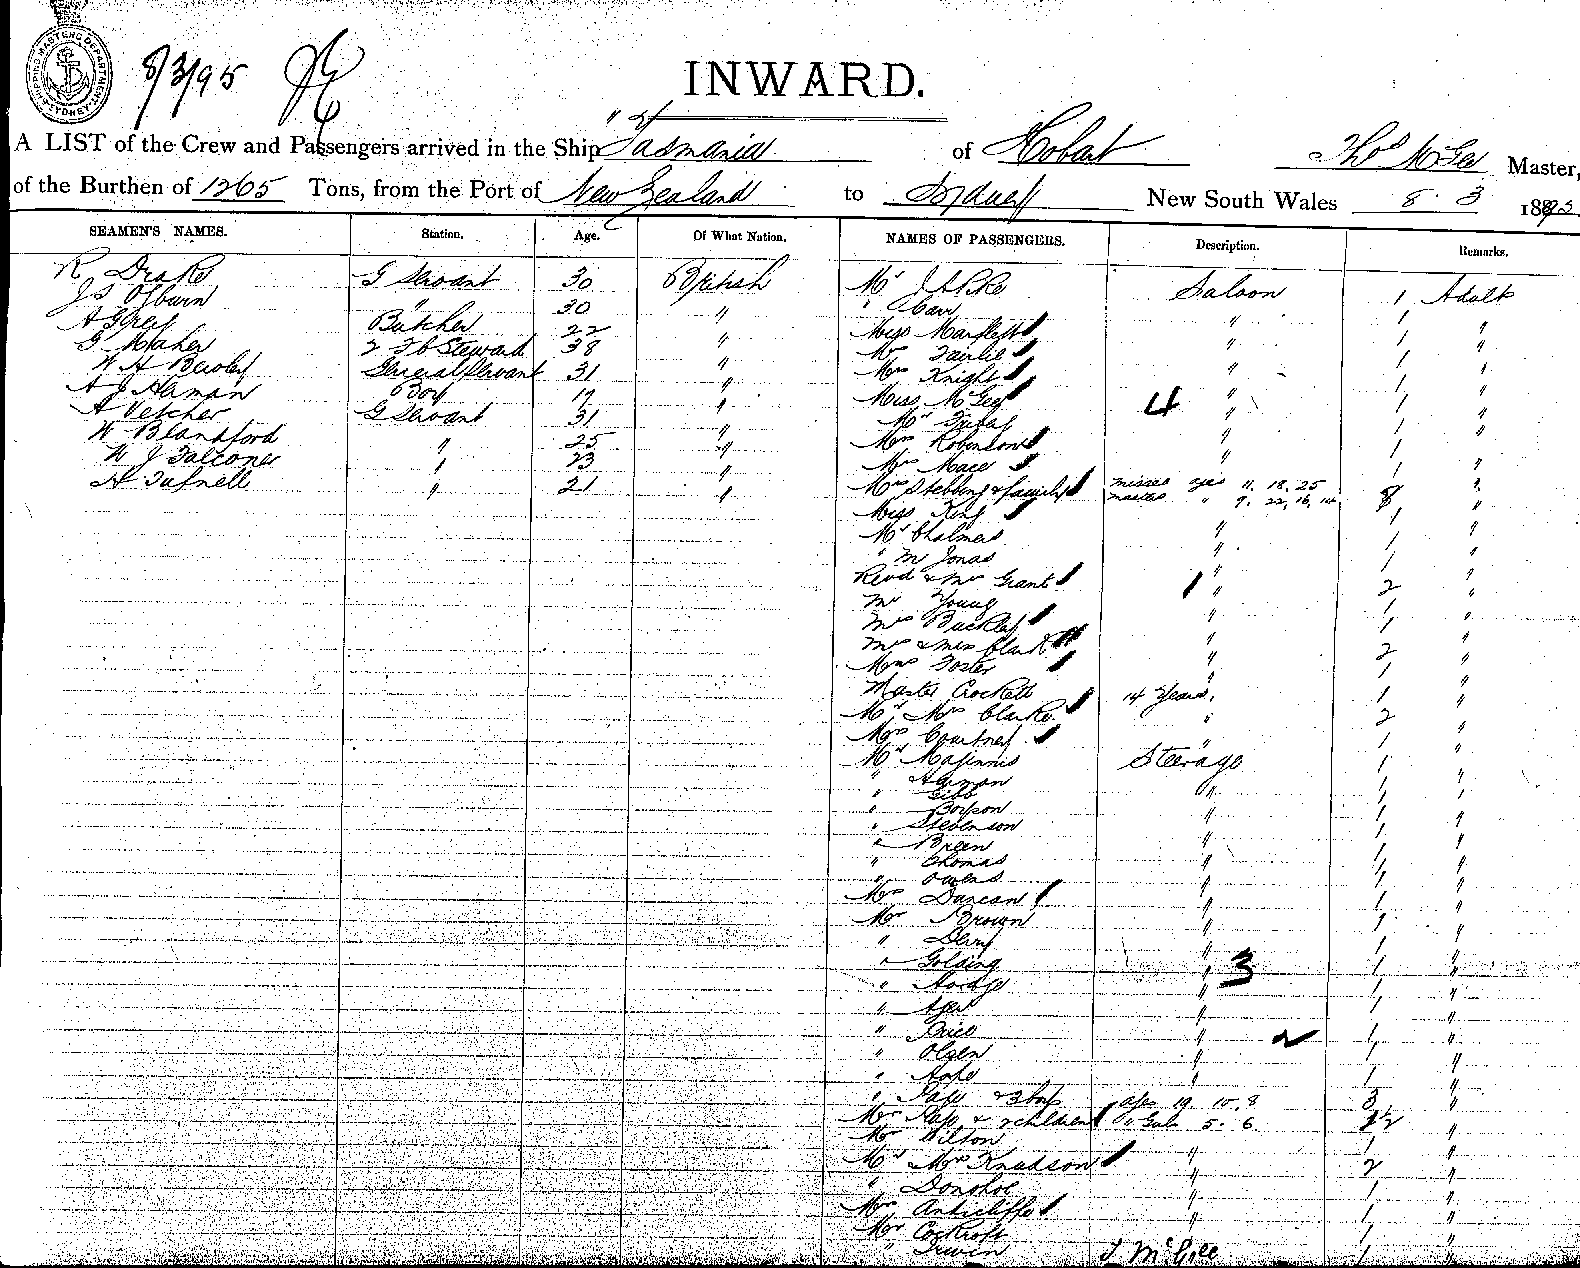 SHIPPING MASTERS DEPARTMENT SYDNEY
8/3/95
INWARD.
A LIST of the Crew and Passengers arrived in the Ship "Tasmania of Hobart Thos McGee Master,
of the Burthen of 1265 Tons, from the Port of New Zealand to Sydney New South Wales 8.3 1895
SEAMEN'S NAMES. Station. Age. Of What Nation. NAMES OF PASSENGERS. Description. Remarks.
R Drake G Servant 30 British
J S Osburn " 30 "
A Grey Butcher 22 "
G Maher 2 Steward 38 "
W H General Servant 31 "
A J Haman Boy 17 "
A Vetcher G Servant 31 "
W Blandford " 25 "
W J Falconer " 23 "
H Tufnell " 21 "
Mr Saloon 1 Adult
" Carr " 1 "
Miss " 1 "
Mr Fairlie " 1 "
Mrs Knight " 1 "
Miss McGee 4 " 1 "
Mr " 1 "
Mrs Robinson " 1 "
Mrs Mace 1 "
Mrs Stebbing & family misses ages 11. 18. 25 8 "
masters " 9. 22, 16, 14
Miss King " 1 "
Mr Chalmers " 1 "
" M Jonas " 1 "
Revd & Mrs Grant " 2 "
Mr Young " 1 "
Mrs Buckley " 1 "
Mrs & Miss Clark " 2 "
Mrs Foster " 1 "
Master Crockett 14 Years. 1 "
Mr Mrs Clarke " 2 "
Mrs Courtney " 1 "
Mr Maginnis Steerage 1 "
" Haman " 1 "
" Gibb " 1 "
" " 1 "
" Stevenson " 1 "
" Breen " 1 "
" Thomas " 1 "
" Owens " 1 "
Mrs Duncan " 1 "
Mr Brown " 1 "
" " 1 "
" Golding " 3 1 "
" Hodge " 1 "
" " 1 "
" Price " 2 1 "
" Olsen " 1 "
" Hope " 1 "
" & 3 boys ages 19. 10. 8 3 "
Mrs & 2 children 5. 6. "
Mr Wilson 1 "
Mr Mrs Knudson " 2 "
" Donohoe " 1 "
Mrs Anticliffe " 1 "
Mr Cockroft 1 "
" Irwin T McGee 1 "